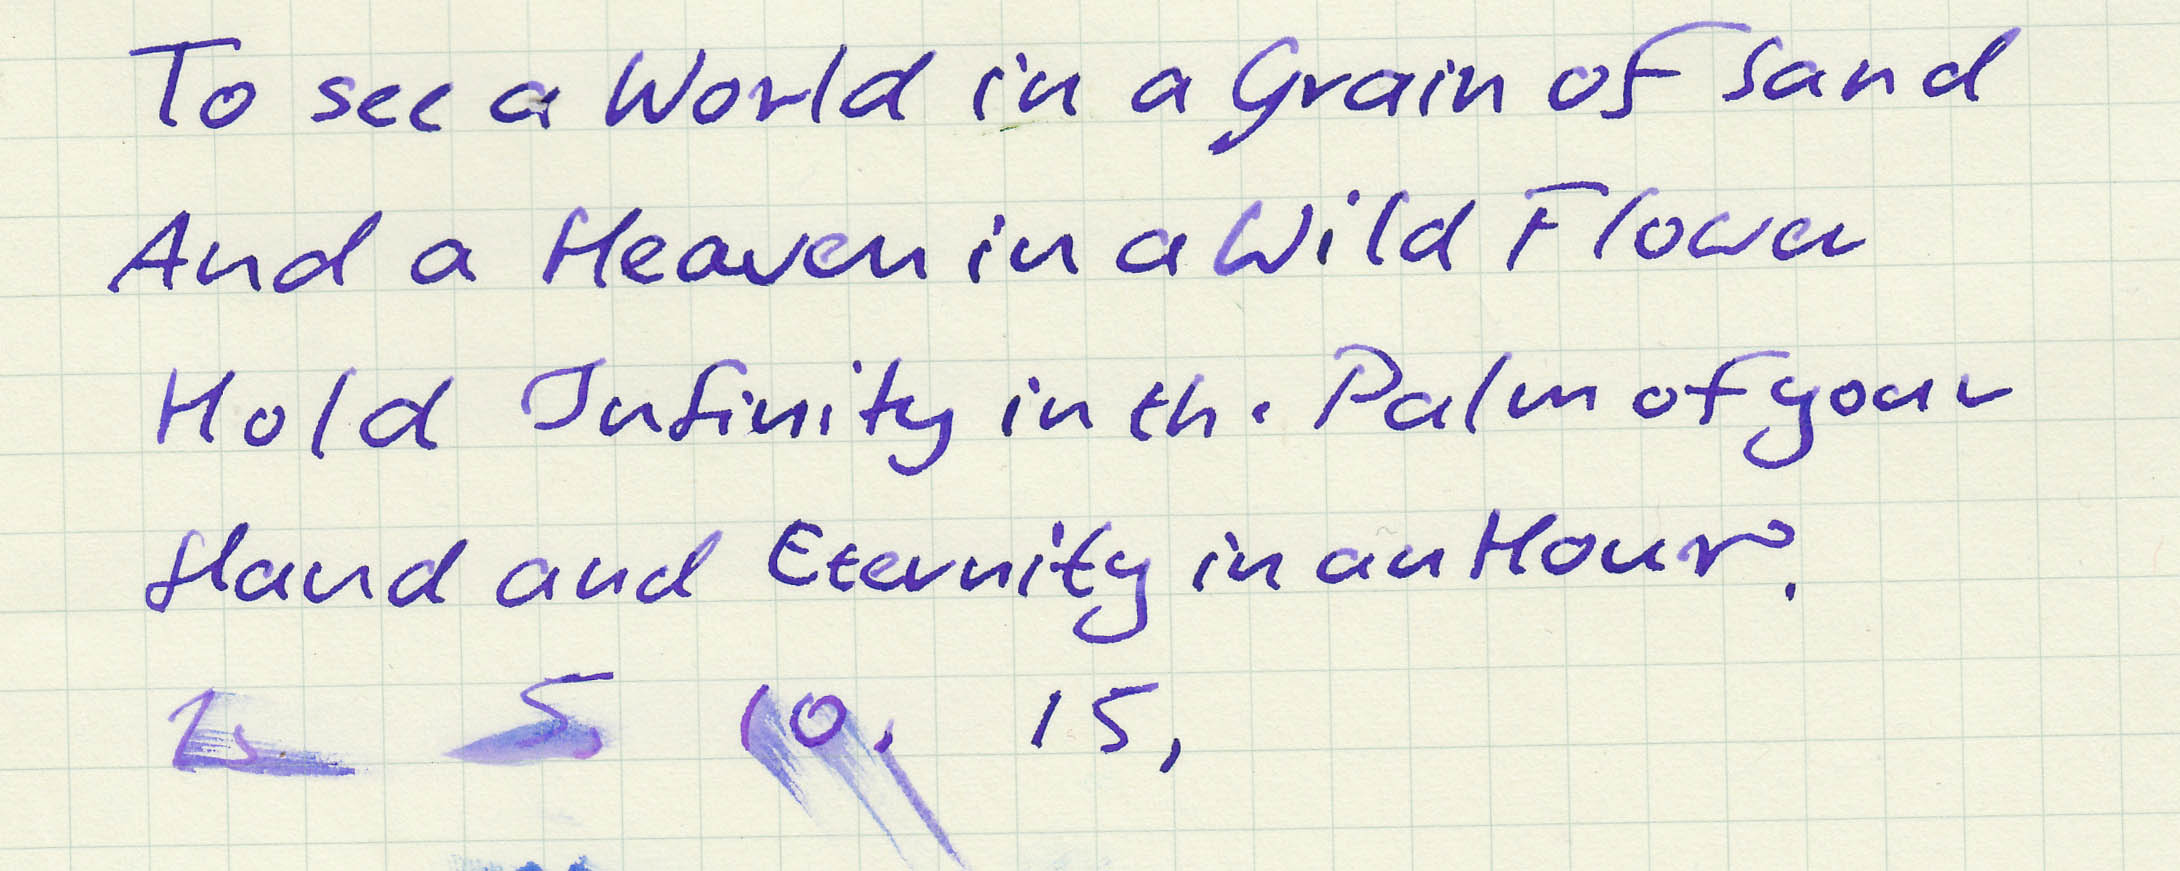 To see a World in a Grain of Sand
And a Heaven in a Wild Flower
Hold Infinity in th. Palm of your
Hand and Eternity in an Hour.
5 10. 15,